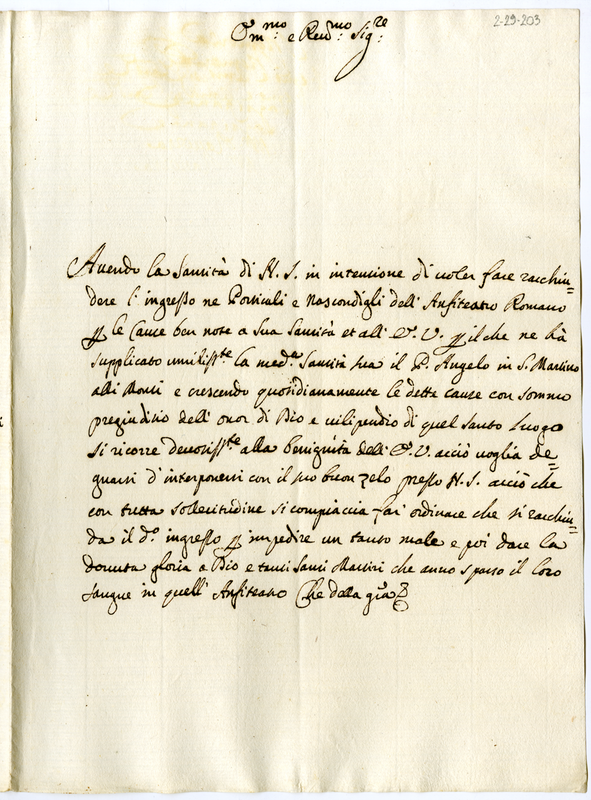 2-29-203
Em.mo e Reu.mo Sig.re
Auendo la Santità di N. S. in intenzione di uoler fare racchiu=
dere l'ingresso ne Porticali e nascondigli dell'Anfiteatro Romano
p le Cause ben note a Sua Santità et all'E. V. p il che ne hà
supplicato umiliss.te la med.a Santità sua il P. Angelo in S. Martino
alli Monti e crescendo quotidianamente le dette cause con sommo
pregiuditio dell'onor di Dio e uilipendio di quel Santo luogo
si ricorre deuotiss.te alla benignità dell'E. V. acciò uoglia de=
gnarsi d'interporsi con il suo buon zelo presso N. S. acciò che
con tutta sollecitudine si compiaccia far ordinare che si racchiu=
da il d.o ingresso p impedire un tanto male e poi dare la
douuta gloria a Dio e tanti Santi Martiri che anno sparso il loro
sangue in quell'Anfiteatro Che della gra